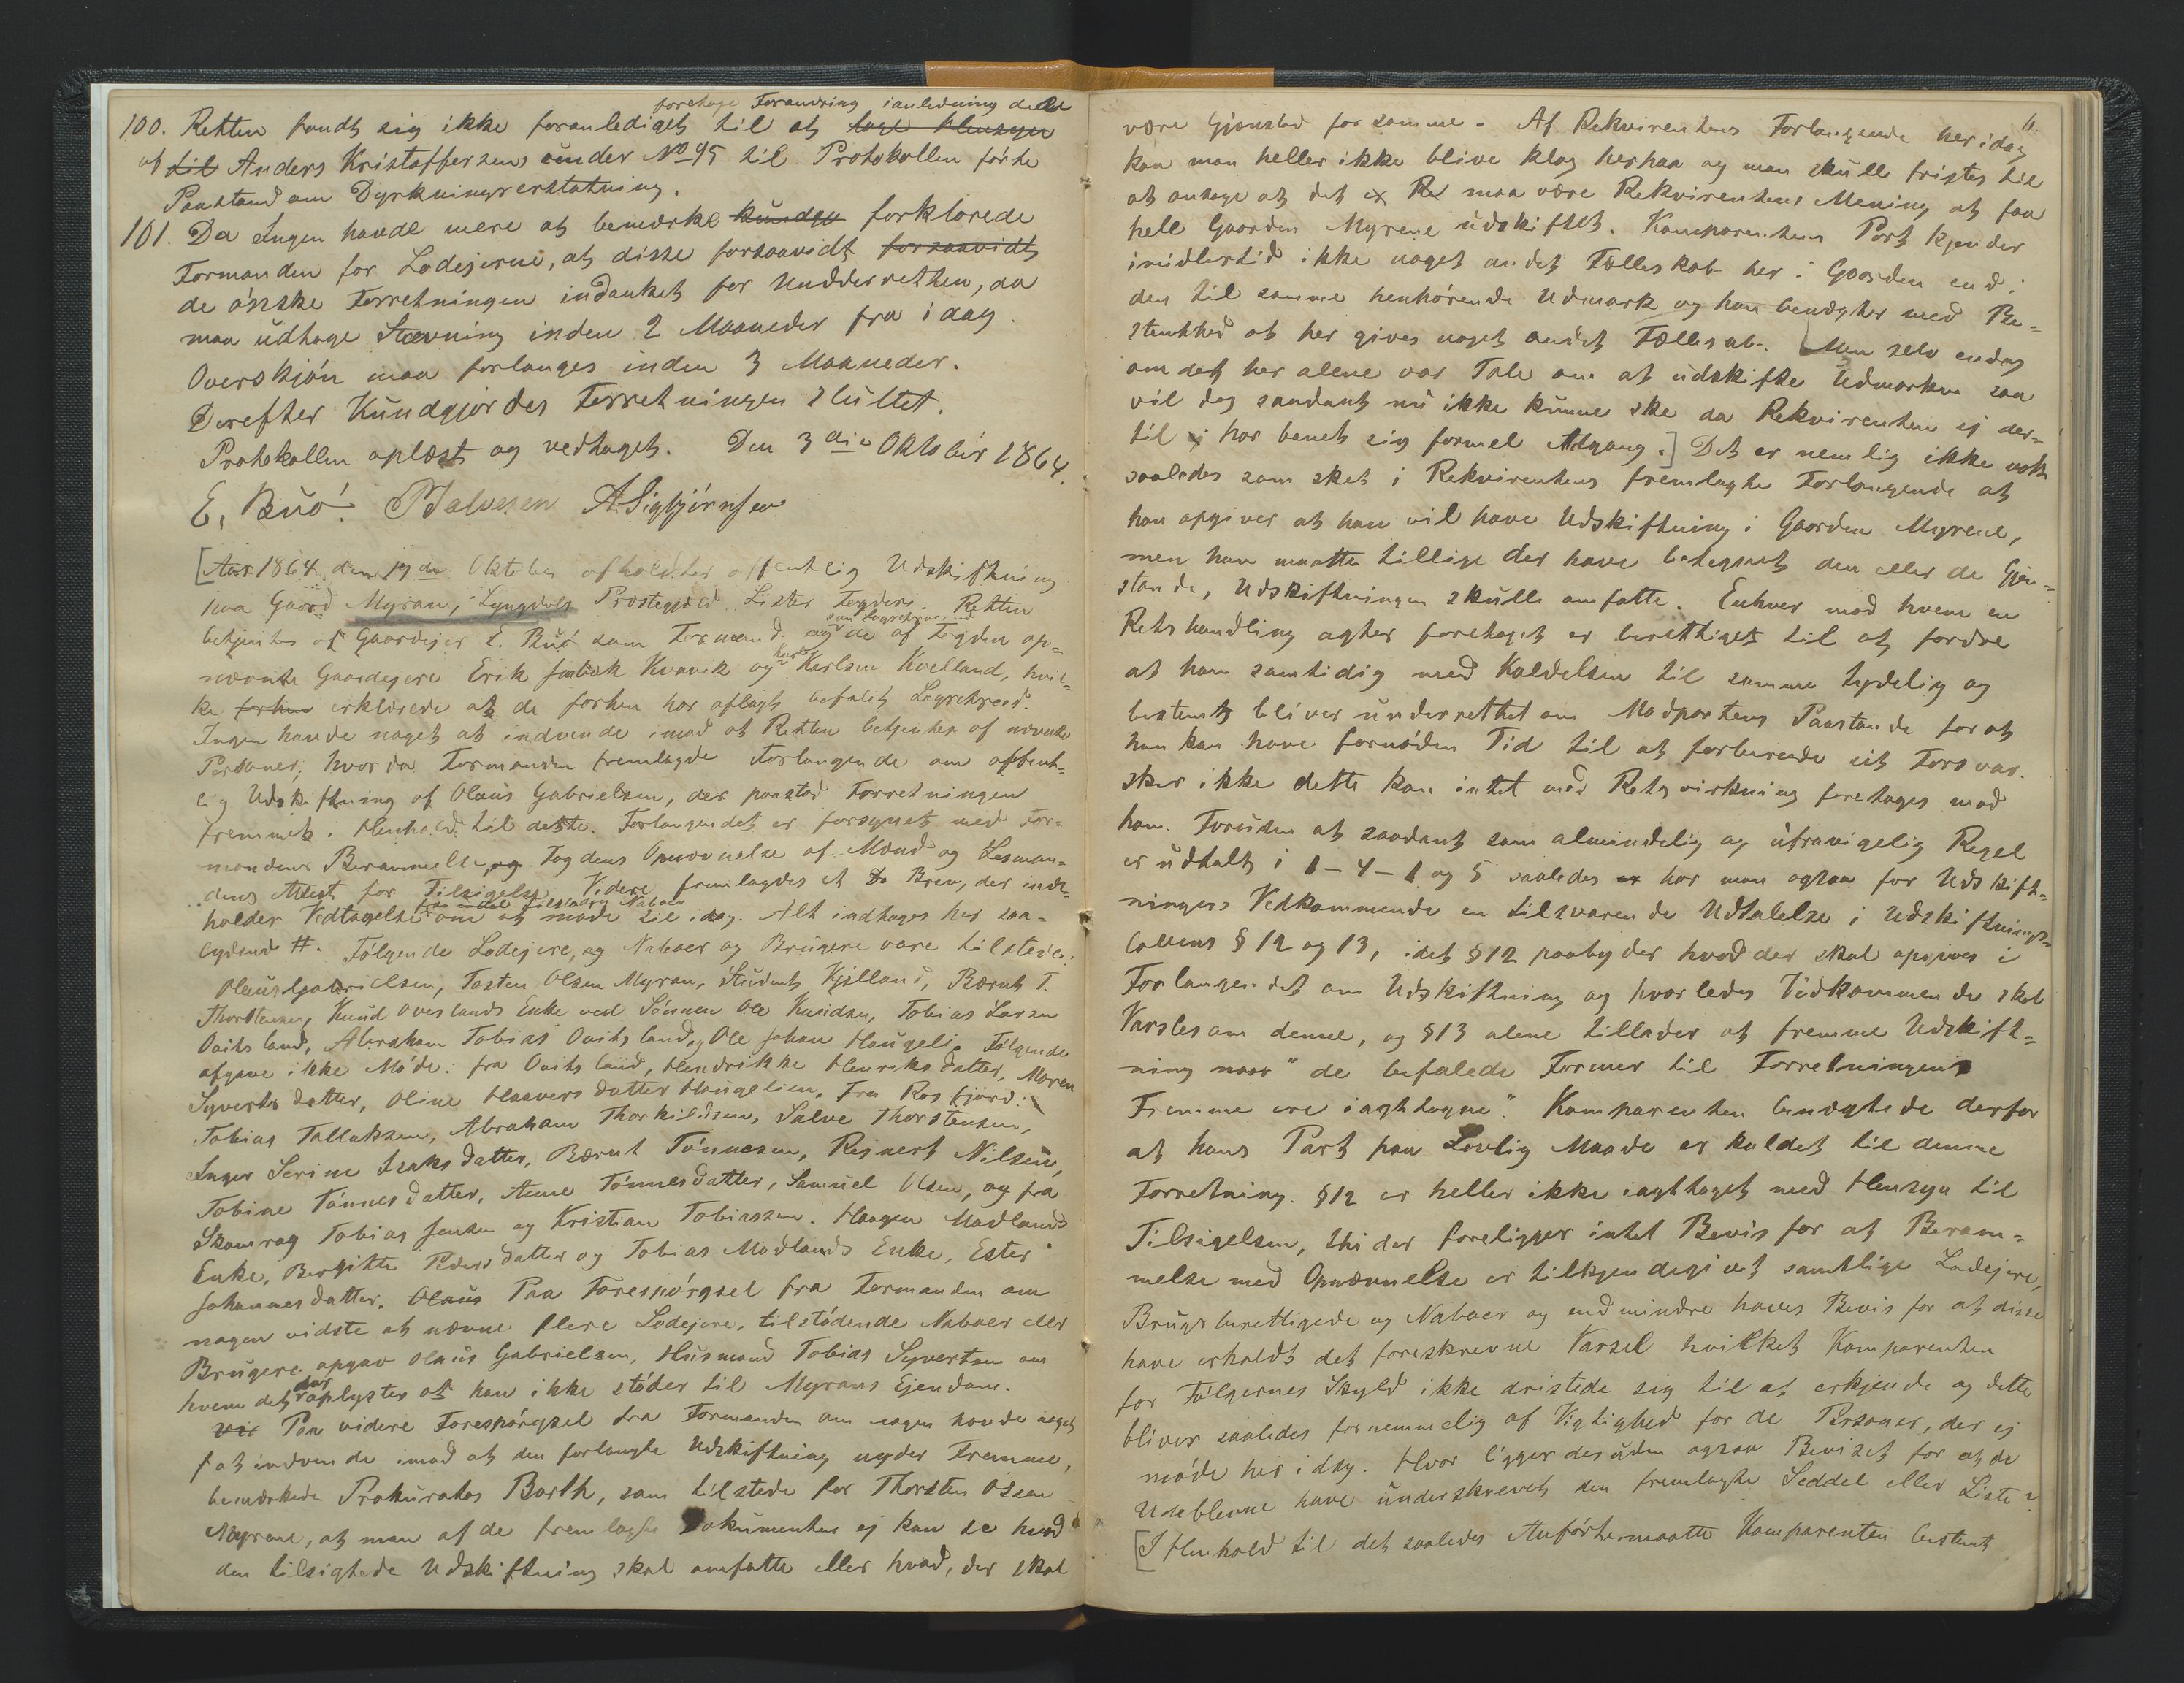 foretage Forandring i anledning deraf
100. Retten fandt sig ikke foranlediget til at tage Hensyn
af til Anders Kristoffersens under No 95 til Protokollen førte
Paastand om Dyrkningserstatning.
101. Da Ingen havde mere at bemærke kundgj forklarede
Formanden for Lodejerne, at disse forsaavidt forsaavidt
de ønske Forretningen indanket for Underretten, da
maa udtage Stævning inden 2 Maaneder fra idag.
Overskjøn maa forlanges inden 3 Maaneder.
Derefter Kundgjordes Forretningen sluttet.
Protokollen oplæst og vedtaget. Den 3die Oktober 1864.
E. Buó. P Salvesen A. Sigbjørnsen
[Aar 1864 den 19de Oktober afholdtes offentlig Udskiftning
paa Gaard Myran, Lyngdals Præstegjeld Lister Fogderi. Retten
som Lagrettesmænd
betjentes af Gaardejer E. Buó som Formand og de af Fogden op-
nævnte Gaardejere Erik Kvavik og Karlsen Kvelland, hvil-
ke forhen erklærede at de forhen har aflagt befalet Lagrettesed.
Ingen havde noget at indvende imod at Retten betjentes af nævnte
Personer, hvorda Formanden fremlagde Forlangende om offent-
lig Udskiftning af Olaus Gabrielsen, der paastod Forretningen
fremmet. Henhold til dette. Forlangendet er forsynet med For-
mandens Berammelse, og Fogdens Opnævnelse af Mænd og Lensman-
dens Attest for Tilsigelse. Videre fremlagdes et Do Brev, der inde-
fra en del tilstødende Naboer
holder Vedtagelse om at møde til idag. Alt indtages her saa-
lydende #. Følgende Lodejere, og Naboer og Brugere vare tilstede:
Olaus Gabrielsen, Tosten Olsen Myran, Student Kjelland, Bærnt T.
Thorstensen, Knud Overlands Enke ved Sønnen Ole Knudsen, Tobias Larsen
Oaitsland, Abraham Tobias Oaitsland, Ole Johan Haugeli. Følgende
afgave ikke Møde: fra Oaitsland, Hendrikke Henriksdatter, Maren
Syvertsdatter, Oline Haaversdatter Haugelien, Fra Rosfjord:
Tobias Tallaksen, Abraham Thorkildsen, Salve Thorstensen,
Inger Serine Isaksdatter, Bærnt Tønnesen, Rejnert Nilsen,
Tobine Tønnesdatter, Anne Tønnesdatter, Samuel Olsen, og fra
Skomrag Tobias Jensen og Kristian Tobiassen. Haagen Modlands
Enke, Bergitte Pedersdatter og Tobias Modlands Enke, Ester
Johannesdatter. Olaus Paa Forespørgsel fra Formanden om
nogen vidste at nævne flere Lodejere, tilstødende Naboer eller
Brugere opgav Olaus Gabrielsen, Husmand Tobias Syvertsen om
hvem det oplystes at han ikke støder til Myrans Ejendom.
Paa videre Forespørgsel fra Formanden om nogen havde noget
at indvende imod at den forlangte Udskiftning nyder Fremme,
bemærkede Prokurator Barth, som tilstede for Thorsten Olsen
Myrene, at man af de fremlagte Dokumenter ej kan se hvad
den tilsigtede Udskiftning skal omfatte eller hvad, der skal
6.
være Gjenstad for samme. Af Rekvirentens Forlangende heridag
kan man heller ikke blive klog herpaa og man skulle fristes til
at antage at det maa være Rekvirentens Mening at faa
hele Gaarden Myrene udskiftet. Komparentens Part kjender
imidlertid ikke noget andet Fælleskab her i Gaarden end i
den til samme henhørende Udmark og han benægter med Be-
stemthed at her gives noget andet Fællesab. [Men selv endog
om det her alene var Tale om at udskifte Udmarken saa
vil dog saadant nu ikke kunne ske da Rekvirenten ej der-
til har banet sig formel Adgang.] Det er nemlig ikke nok
saaledes som sket i Rekvirentens fremlagte Forlangende at
han opgiver at han vil have Udskiftning i Gaarden Myrene,
men han maatte tillige der have betegnet den eller de Gjen-
stande, Udskiftningen skulle omfatte. Enhver mod hvem en
Retshandling agtes foretaget er berettiget til at fordre
at han samtidig med Kaldelsen til samme tydelig og
bestemt bliver underrettet om Modpartens Paastande for at
han kan have fornøden Tid til at forberede sit Forsvar.
Sker ikke dette kan intet med Retsvirkning foretages mod
ham. Foruden at saadant som almindelig og ufravigelig Regel
er udtalt i 1-4-1 og 5 saaledes har man ogsaa for Udskift-
ningers Vedkommende en tilsvarende Udtalelse i Udskiftnings-
lovens § 12 og 13, idet § 12 paabyder hvad der skal opgives i
Forlangendet om Udskiftning og hvorledes Vedkommende skal
Varsles om denne, og § 13 alene tillader at fremme Udskift-
ning naar "de befalede Former til Forretningens
Fremme ere iagttagne". Komparenten benægtede derfor
at hans Part paa Lovlig Maade er kaldet til denne
Forretning. § 12 er heller ikke iagttaget med Hensyn til
Tilsigelsen, thi der foreligger intet Bevis for at Beram-
melse med Opnævnelse er tilkjendegivet samtlige Lodejere,
Brugsberettigede og Naboer og endmindre haves Bevis for at disse
have erholdt det foreskrevne Varsel hvilket Komparenten
for Følgernes Skyld ikke dristede sig til at erkjende og dette
bliver saaledes fornemmelig af Vigtighed for de Personer, der ej
møde her idag. Hvor ligger desuden ogsaa Beviset for at de
Udeblevne have underskrevet den fremlagte Seddel eller Liste?
[I Henhold til det saaledes Anførte maatte Komparenten bestemt